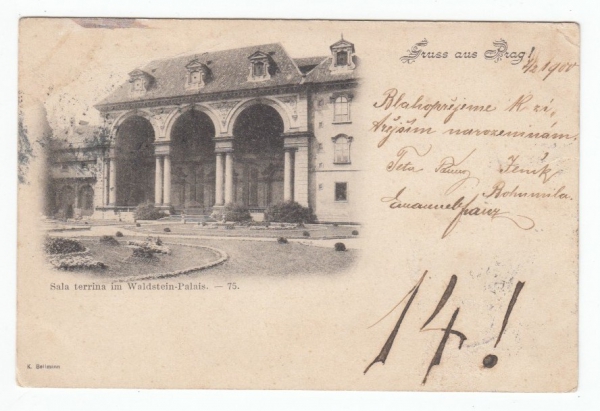 Gruss aus Prag!
1/2 1900
Blahopřejeme K zí,
třejším narozeninám.
Teta Jeník
Bohumila.
Emanuel
14!
Sala terrina im Waldstein-Palais. — 75.
K. Bellmann